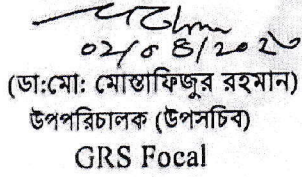 02/08/2020
(ডা:মো: মোস্তাফিজুর রহমান)
উপপরিচালক (উপসচিব)
GRS Focal